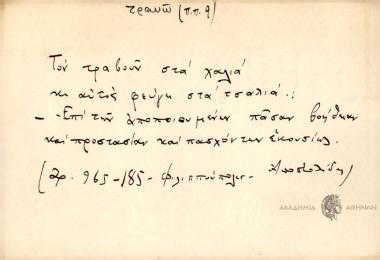 τραυῶ (π.π. 9)
Τὸν τραβοῦν στὰ χαλιὰ
κι αὐτὸς φεύγη στὰ τσαλιά.:
– Ἐπὶ τῶν ἀποποιουμένων πᾶσαν βοήθειαν
καὶ προστασίαν καὶ πασχόντων ἑκουσίως.
(Ἀρ. 965 – 185 – Φιλιππούπολις – Ἀποστολίδης)
ΑΚΑΔΗΜΙΑ ΑΘΗΝΩΝ